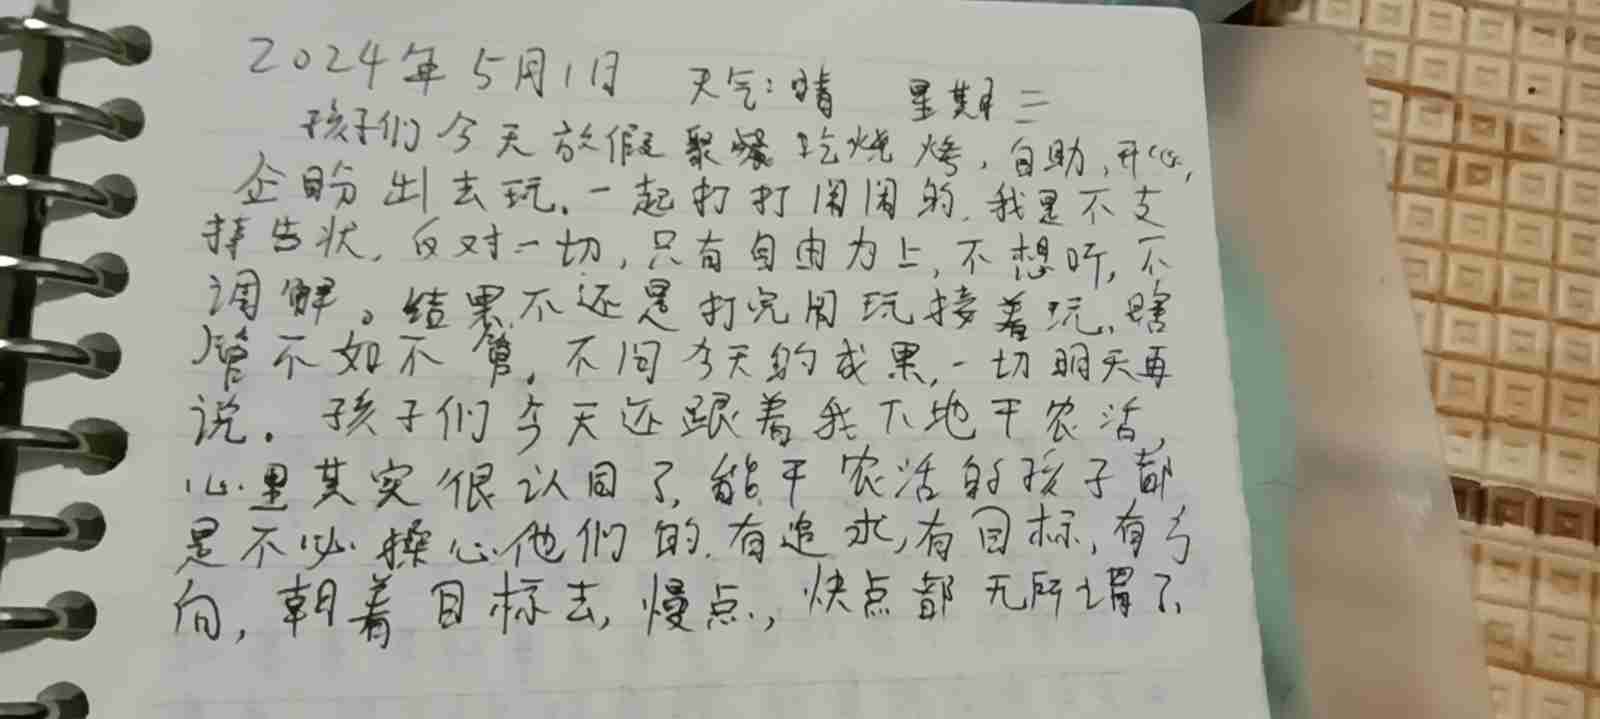 2024年5月1日 天气：晴 星期三
孩子们今天放假聚餐吃烧烤，自助，开心，
企盼出去玩。一起打打闹闹的，我是不支
持告状，反对一切，只有自由力上，不想听，不
调解。结果不还是打完闹玩接着玩，瞎
管不如不管。不问今天的成果，一切明天再
说。孩子们今天还跟着我下地干农活，
心里其实很认同了，能干农活的孩子都
是不必操心他们的，有追求，有目标，有方
向，朝着目标去，慢点，快点都无所谓了，